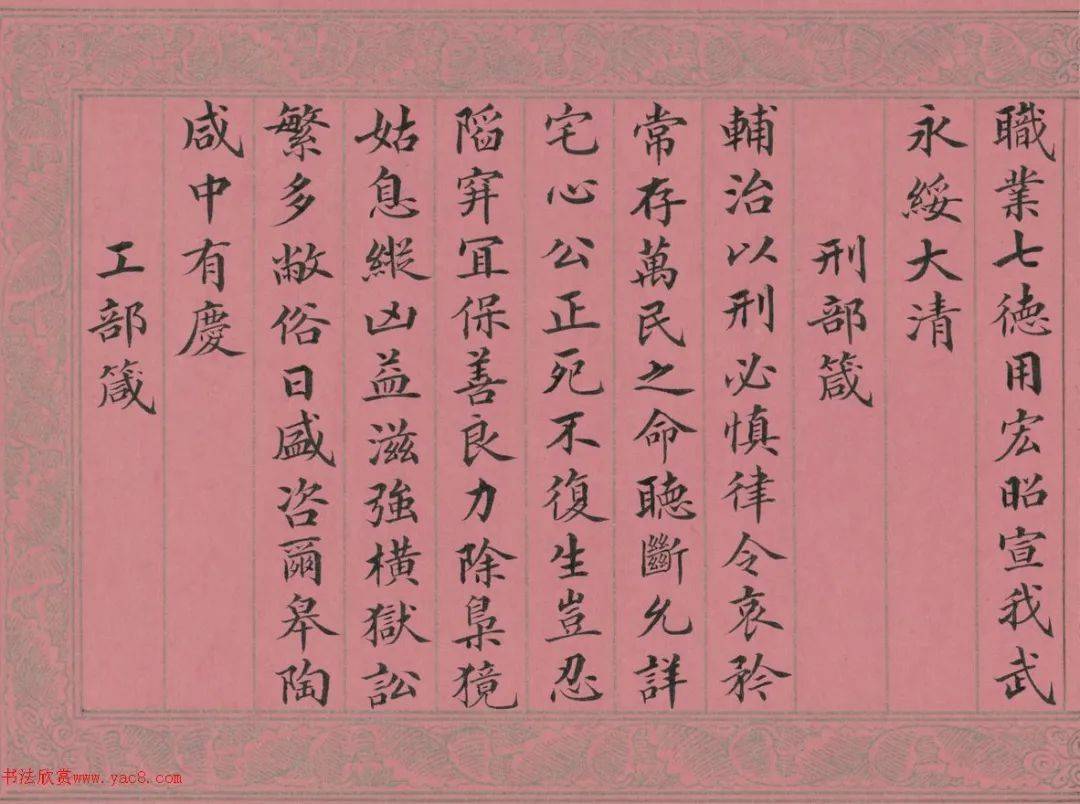 職業七德用宏昭宣我武
永綏大清
刑部箴
輔治以刑必慎律令哀矜
常存萬民之命聽斷允詳
宅心公正死不復生豈忍
陷穽宜保善良力除梟獍
姑息縱凶益滋強橫獄訟
繁多敝俗日盛咨爾皋陶
咸中有慶
工部箴
书法欣赏www.yac8.com